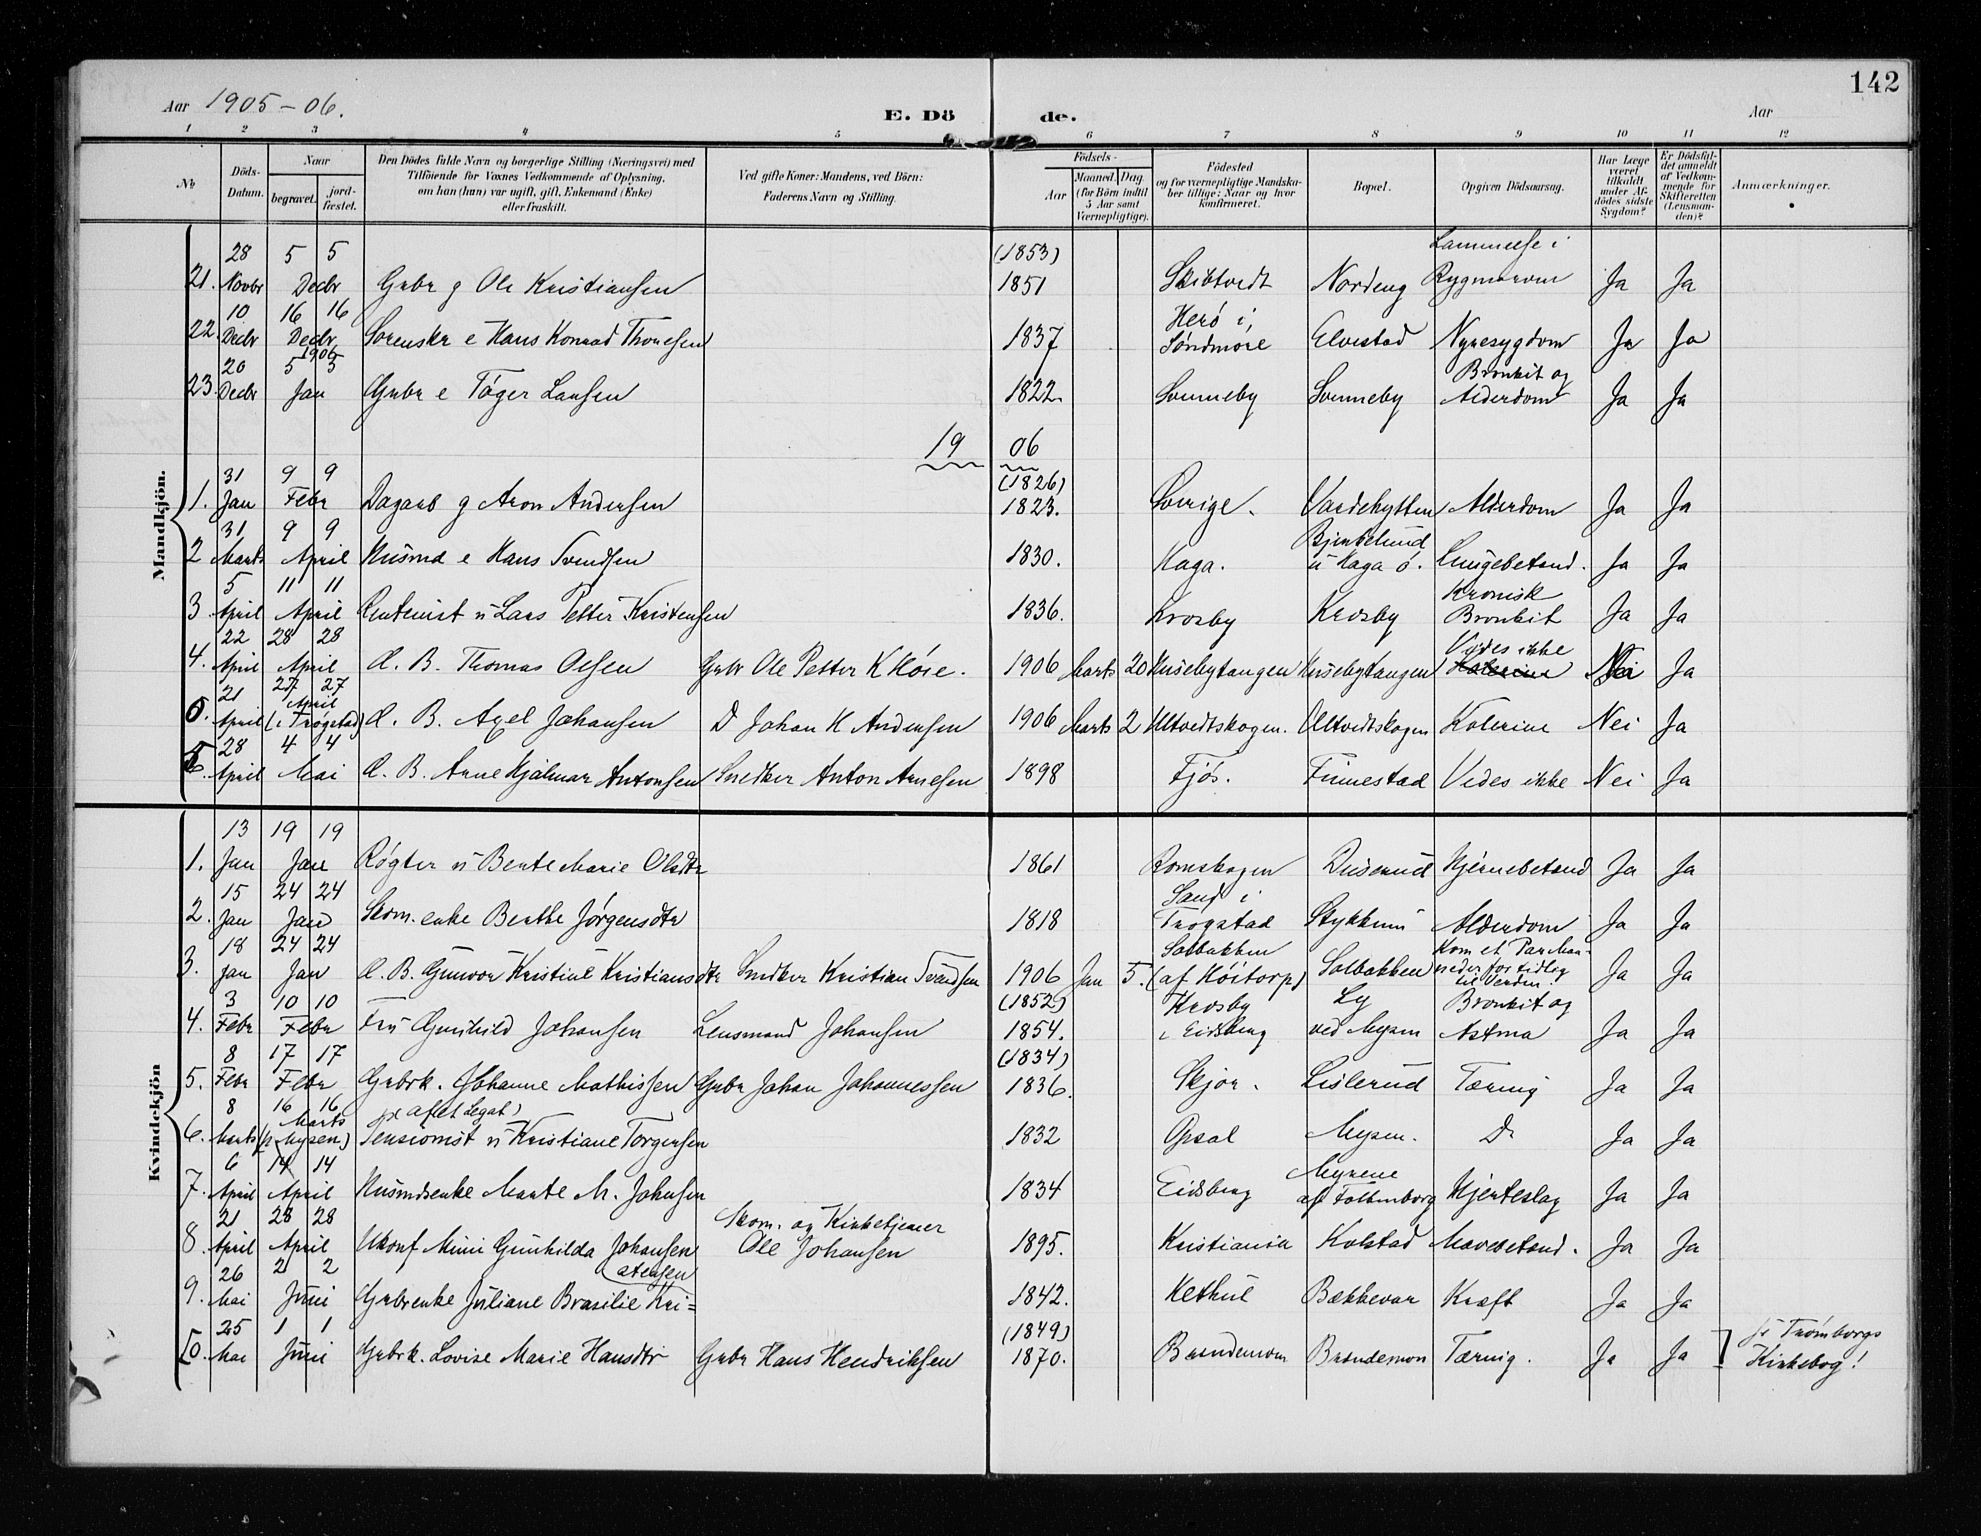 142
Aar 1905-06.
E. Dö de.
Aar
1 2 3 4 5 6 7 8 9 10 11 12
No
Döds-Datum.
Naar
begravet.
jord-fæstet.
Den Dödes fulde Navn og borgerlige Stilling (Næringsvei) med
Tilföiende for Voxnes Vedkommende af Oplysning,
om han (hun) var ugift, gift, Enkemand (Enke)
eller fraskilt.
Ved gifte Koner: Mandens, ved Börn:
Faderens Navn og Stilling.
Födsels-
Aar
Maaned. Dag.
(for Börn indtil
5 Aar samt
Værnepligtige).
Födested
og for værnepligtige Mandska-
ber tillige: Naar og hvor
konfirmeret.
Bopæl.
Opgiven Dödsaarsag.
Har Læge
været
tilkaldt
under Af-
dödes sidste
Sygdom?
Er Dödsfal-
det anmeldt
af Vedkom-
mende for
Skifteretten
(Lensman-
den)?
Anmærkninger.
Mandkjön.
21. 28 Novbr 5 5 Decbr Grbr g Ole Kristiansen (1853) 1851 Skibtvedt Nordeng Lammelse i Rygmarven Ja Ja
22. 10 Decbr 16 16 Decbr Sorenskr e Hans Konrad Thonesen 1837 Herö i Söndmöre Elvestad Nyresygdom Ja Ja
23. 20 Decbr 1906 5 5 Jan Grbr e Töger Larsen 1822 Sonneby Sonneby Bronkit og Alderdom Ja Ja
19 06
1. 31 Jan 9 9 Febr Dagarb g Aron Andersen (1826) 1823. Sverige. Vardehytten Alderdom Ja Ja
2 31 Marts 9 9 April Husmd e Hans Svendsen 1830. Haga. Bjerkelund u Haga ö. Lungebetend. Ja Ja
3 5 April 11 11 April Rentenist ú Lars Petter Kristensen 1836. Krosby Krosby Kronisk Bronkit Ja Ja
4. 22 April 28 28 April E. B. Thomas Olsen Grbr Ole Petter K Höie. 1906 Marts 20 Husebytangen Husebytangen Vides ikke Kolerine Nei Ja
5. 21 April 27 27 April (i Trögstad) E. B. Axel Johansen D Johan H Andersen 1906 Marts 2 Ultvedtskogen. Ultvedtskogen Kolerine Nei Ja
6. 28 April 4 4 Mai E. B. Arne Hjalmar Antonsen Snedker Anton Arnesen 1898 Fjös. Finnestad Vides ikke Nei Ja
Kvindekjön
1. 13 Jan 19 19 Jan Røgter ú Bente Marie Olsdtr 1861 Romskogen Duserud Hjernebetend Ja Ja
2. 15 Jan 24 24 Jan Skom. enke Berthe Jörgensdtr 1818 Sand i Trögstad Stykkum Alderdom Ja Ja
3. 18 Jan 24 24 Jan E. B. Gunvor Kristine Kristiansdtr Snedker Kristian Svendsen 1906 Jan 5. Solbakken (af Höitorp) Solbakken Kom et Par Maaneder for tidlig til Verden. Ja Ja
4. 3 Febr 10 10 Febr Frú Gunhild Johansen Lensmand Johansen (1852) 1854. Krosby i Eidsberg Ly ved Mysen Bronkit og Astma Ja Ja
5. 8 Febr 17 17 Febr Grbrk. Johanne Mathissen Grbr Johan Johannessen (1834) 1836. Skjor. Lislerud Tæring Ja Ja
6. 8 Marts 16 16 Marts (p Mysen) (af et Legat) Pensionist ú Kristiane Torgersen 1832 Opsal Mysen. Do Ja Ja
7. 6 April 14 14 April Husmdsenke Marte M. Johnsen 1834 Eidsberg Myrene af Folkenborg Hjerteslag Ja Ja
8 21 April 28 28 April Ukonf Mimi Gunhilda Johansen Skom. og Kirketjener Ole Johansen 1895. Kristiania Kolstad Mavebetend. Ja Ja
9. 26 Mai 2 2 Júni Grbrenke Júliane Brasilie Kri=stensen 1842. Kethul Bækkevar Kræft Ja Ja
10. 25 Mai 1 1 Júni Grbrk. Lovise Marie Hansdtr Grbr Hans Hendriksen (1849) 1870. Brændemoen Brændemoen Tæring. Ja Ja ] fr Trömborgs Kirkebog!